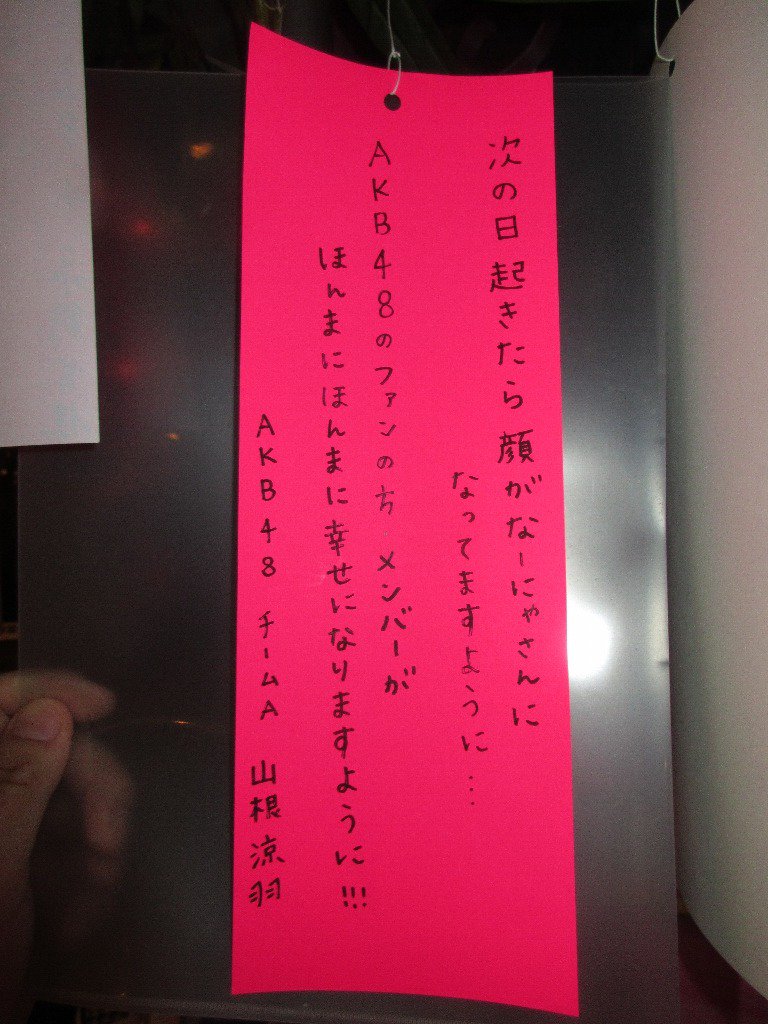 次の日起きたら顔がなーにゃさんに
なってますように…
AKB48のファンの方 メンバーが
ほんまにほんまに幸せになりますように!!!
AKB48 チームA 山根涼羽